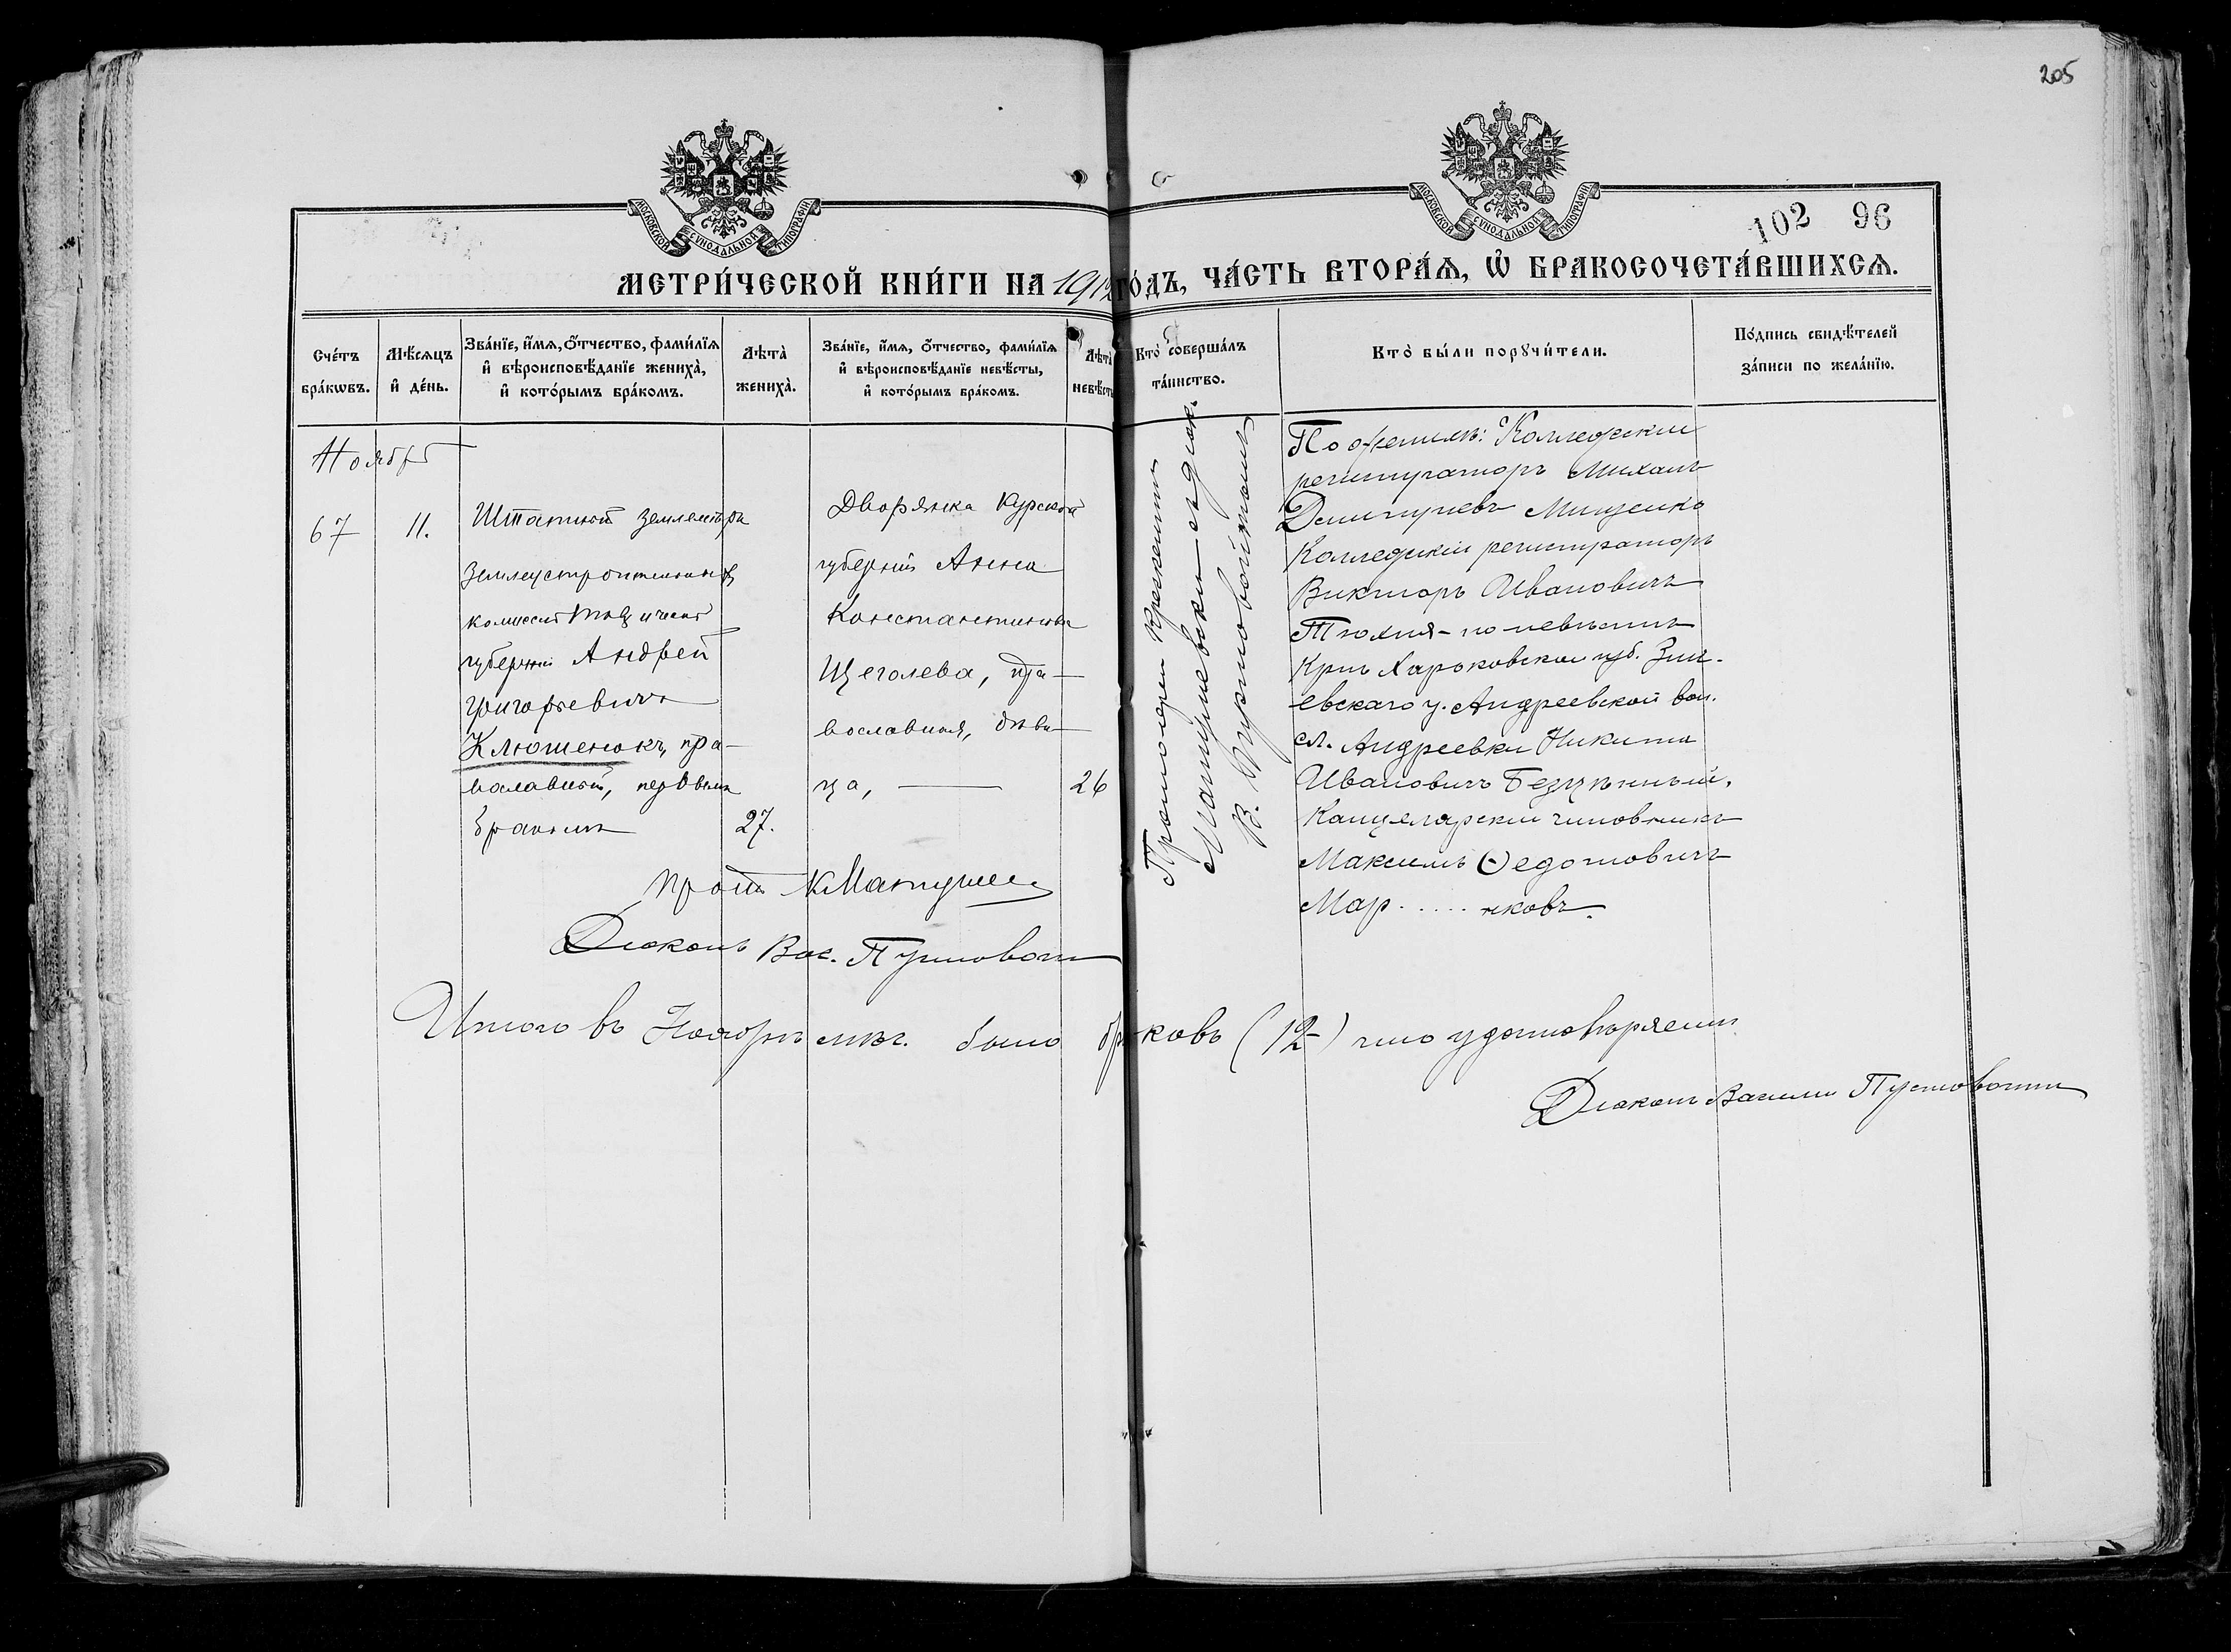 205
МОСКОВСКОЙ СѴНОДАЛЬНОЙ ТИПОГРАФІИ
МОСКОВСКОЙ СѴНОДАЛЬНОЙ ТИПОГРАФІИ
102 96
МЕТРИ́ЧЕСКОЙ КНИ́ГИ НА 1912 ГО́ДЪ, ЧА́СТЬ ВТОРА́Ѧ, Ѽ БРАКОСОЧЕТА́ВШИХСѦ.
Сче́тъ бра́кѡвъ.
Мѣ́сѧцъ и҆ де́нь.
Зва́нїе, и҆́мѧ, ѻ҆́тчество, фами́лїѧ и҆ вѣроисповѣ́данїе жениха̀, и҆ кото́рымъ бра́комъ.
Лѣта̀ жениха̀.
Зва́нїе, и҆́мѧ, ѻ҆́тчество, фами́лїѧ и҆ вѣроисповѣ́данїе невѣ́сты, и҆ кото́рымъ бра́комъ.
Лѣта̀ невѣ́сты
Кто̀ соверша́лъ та́инство.
Кто̀ бы́ли порꙋчи́тели.
По́дпись свидѣ́телей за́писи по жела́нїю.
Ноябрь
67
11.
Штатный землемѣръ
землеустроительныхъ
комиссій
губерніи Андрей
Григорьевичъ
Клюшенокъ, пра-
вославный, первымъ
бракомъ
27.
Дворянка Курской
губерніи Анна
Константинова
Щеголева, пра-
вославная, дѣви-
ца,
26
Протоіерей
съ діак.
В. Пустовойтомъ
По женихѣ: Коллежскій
регистраторъ Михаилъ
Димитріевъ Мищенко
Коллежскій регистраторъ
Викторъ Ивановичъ
Тюхня - по невѣстѣ
Крнъ Харьковской губ. Змі-
евскаго у. Андреевской вол.
сл. Андреевки Никита
Ивановичъ Безцѣнный.
Канцелярскій чиновникъ
Максимъ Ѳедотовичъ
Мар.....нковъ.
Прот. К Матушев
Діаконъ Вас. Пустовойтъ
Итого въ Ноябрѣ мѣс. было браковъ (12) что удостовѣряемъ
Діаконъ Василій Пустовойтъ